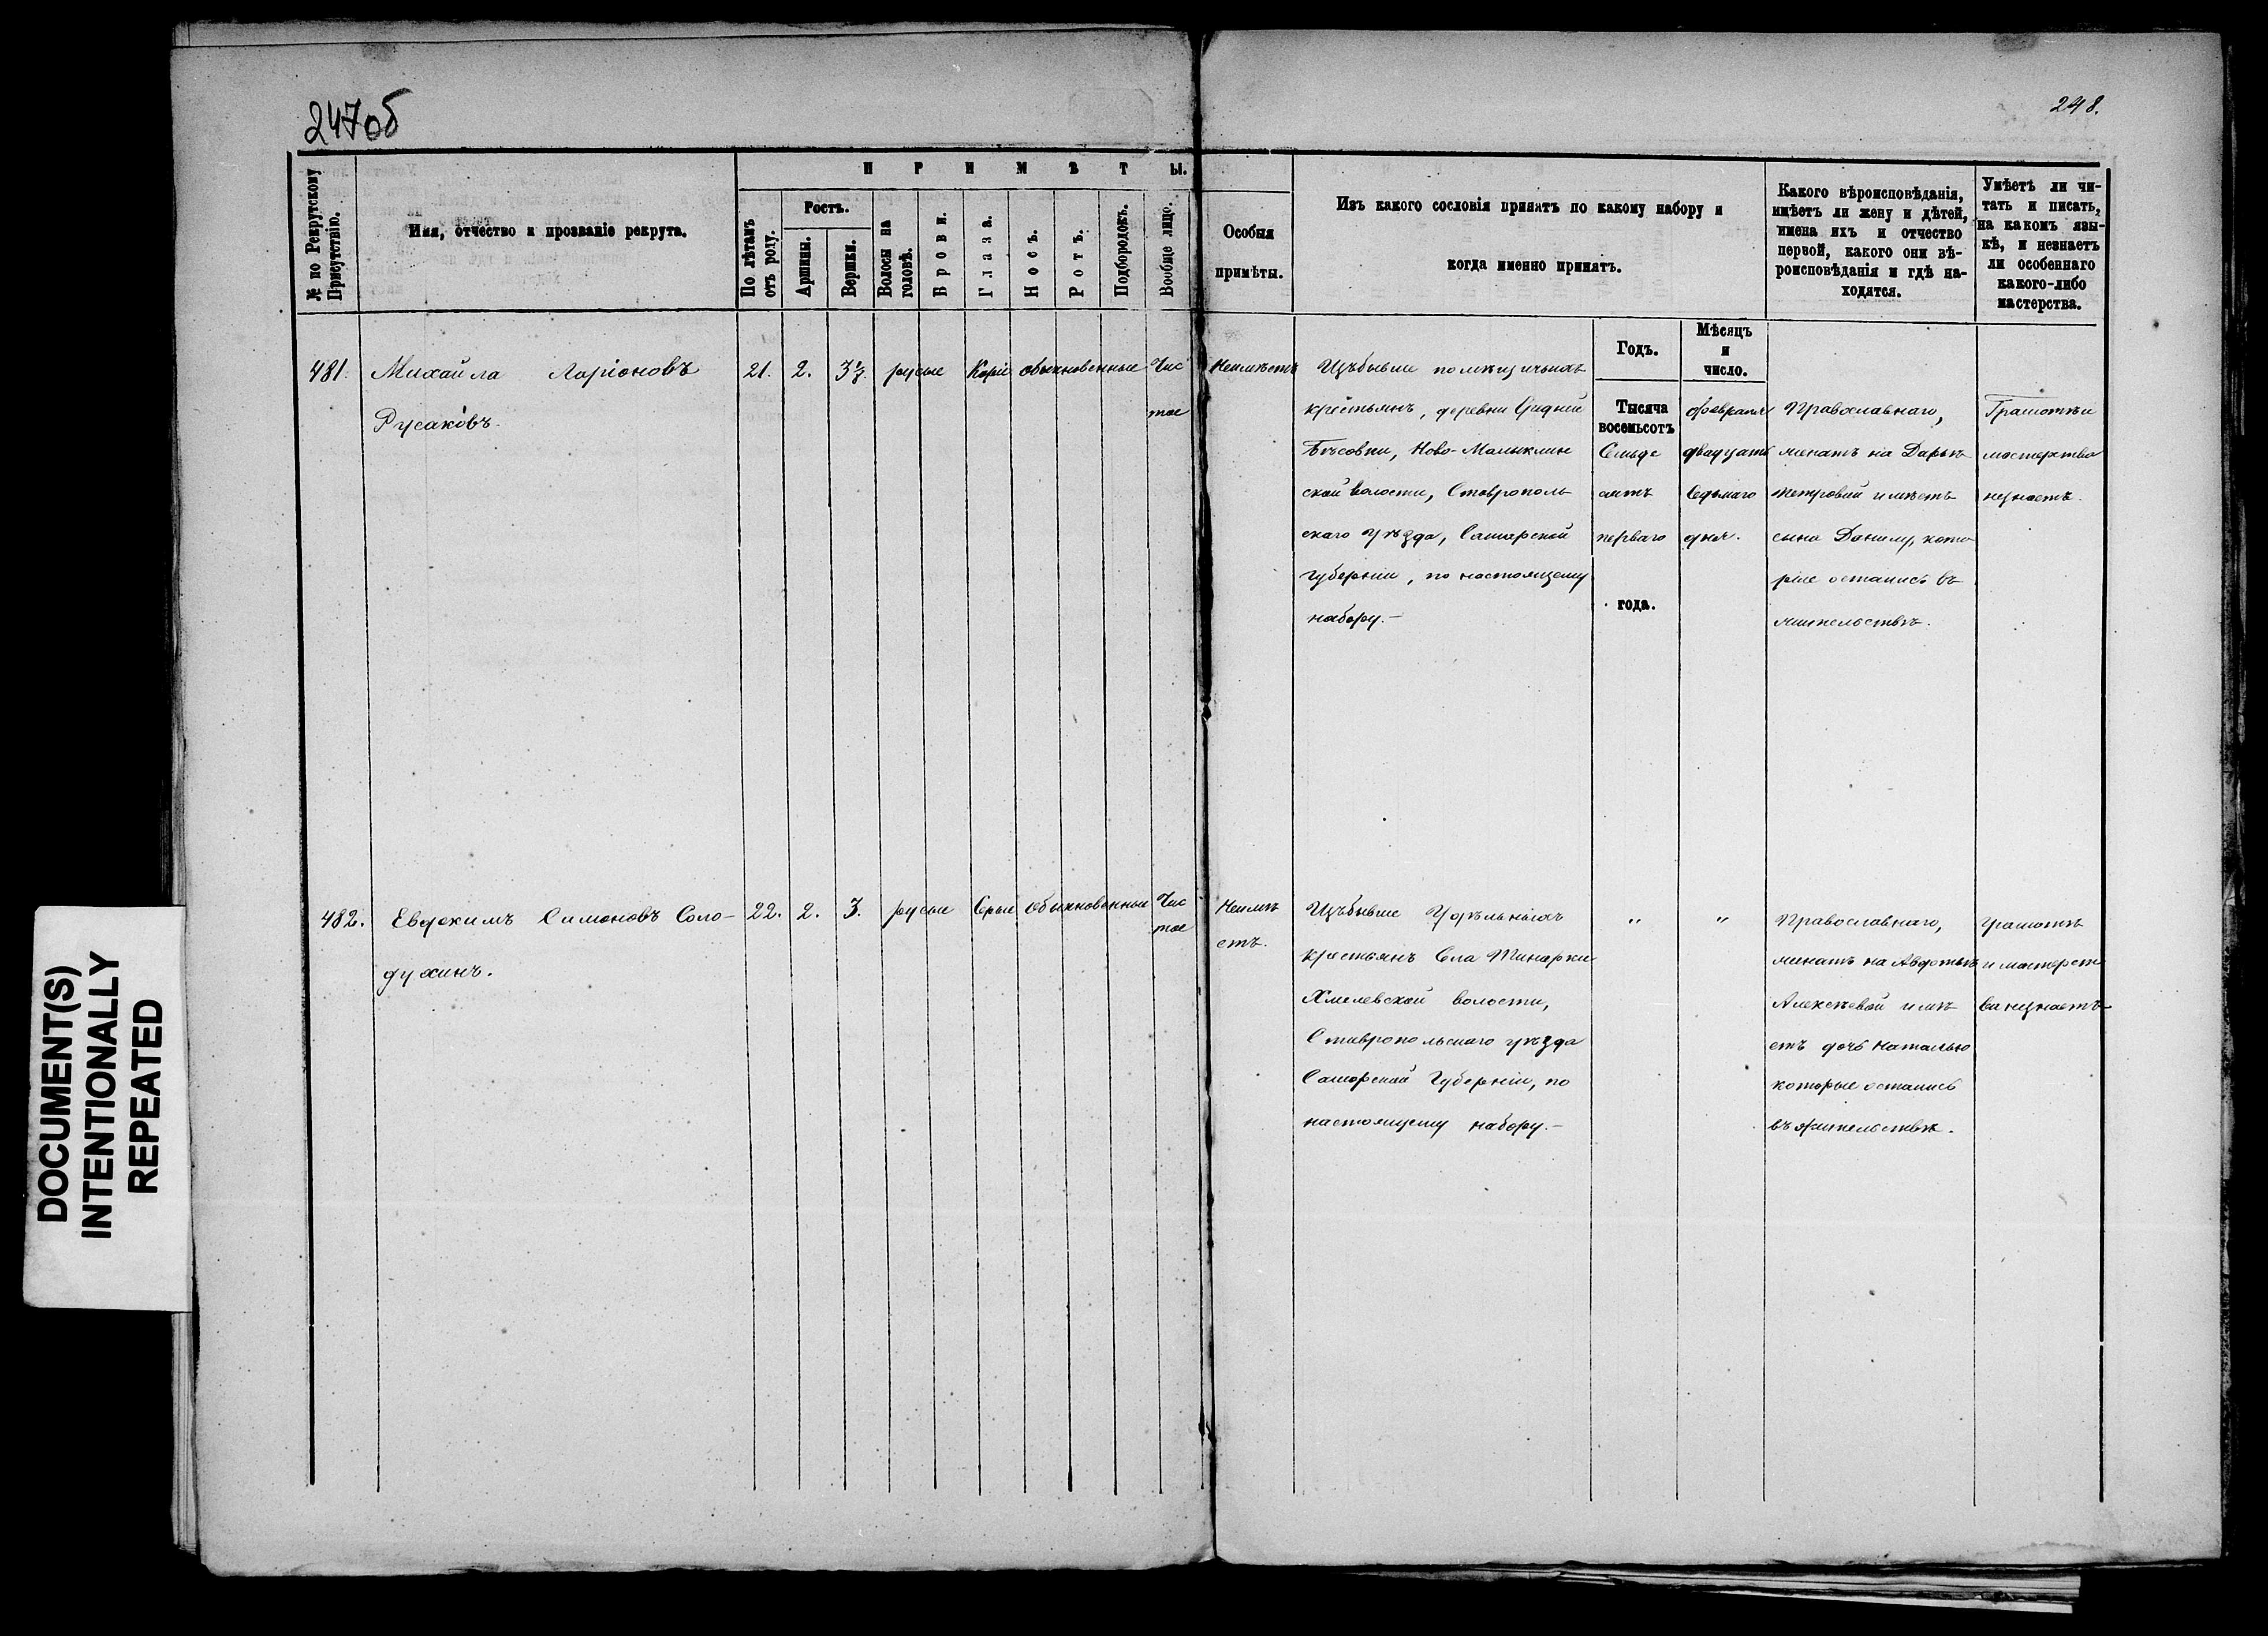 247об
248.
№ по Рекрутскому Присутствію.
Имя, отчество и прозваніе рекрута.
ПРИМѢТЫ.
По лѣтамъ отъ роду.
Ростъ.
Аршины.
Вершки.
Волосы на головѣ.
Брови.
Глаза.
Носъ.
Ротъ.
Подбородокъ.
Вообще лицо.
Особыя
примѣты.
Изъ какого сословія принятъ по какому набору и
когда именно принятъ.
Какого вѣроисповѣданія,
имѣетъ ли жену и дѣтей,
имена ихъ и отчество
первой, какого они вѣ-
роисповѣданія и гдѣ на-
ходятся.
Умѣетъ ли чи-
тать и писать,
на какомъ язы-
кѣ, и незнаетъ
ли особеннаго
какого-либо
мастерства.
Годъ.
Мѣсяцъ
и
число.
481.
Михайла Ларіоновъ
Русаковъ.
21.
2.
3½.
русые
Каріе
обыкновенные
Чис
тое
Неимѣетъ
Изъбывше помѣщичьихъ
крестьянъ, деревни Средней
Бѣсовки, Ново-Малыклин
ской волости, Ставрополь
скаго уѣзда, Самарской
губерніи, по настоящему
набору.-
Тысяча
восемьсотъ
Семьде
сятъ
перваго
года.
февраля
двадцать
Седьмаго
дня.
Православнаго,
женатъ на Дарьѣ
Петровой имѣетъ
сына Данилу, кото
рые остались въ
жительствѣ.
Грамотѣ и
мастерства
незнаетъ.
482.
Евдокимъ Симоновъ Соло-
духинъ.
22.
2.
3.
русые
Серые
Обыкновенные
Чис
тое
Неимѣ
етъ.
Изъбывше Удѣльныхъ
крестьянъ Села Тинарки
Хмелевской волости,
Ставропольскаго уѣзда
Самарской Губерніи, по
настоящему набору.-
"
"
Православнаго,
женатъ на Авдотьѣ
Алексѣевой имѣ
етъ дочь Наталью
которые остались
въ жительствѣ.
грамотѣ
и мастерст
ва незнаетъ-
DOCUMENT(S)
INTENTIONALLY
REPEATED